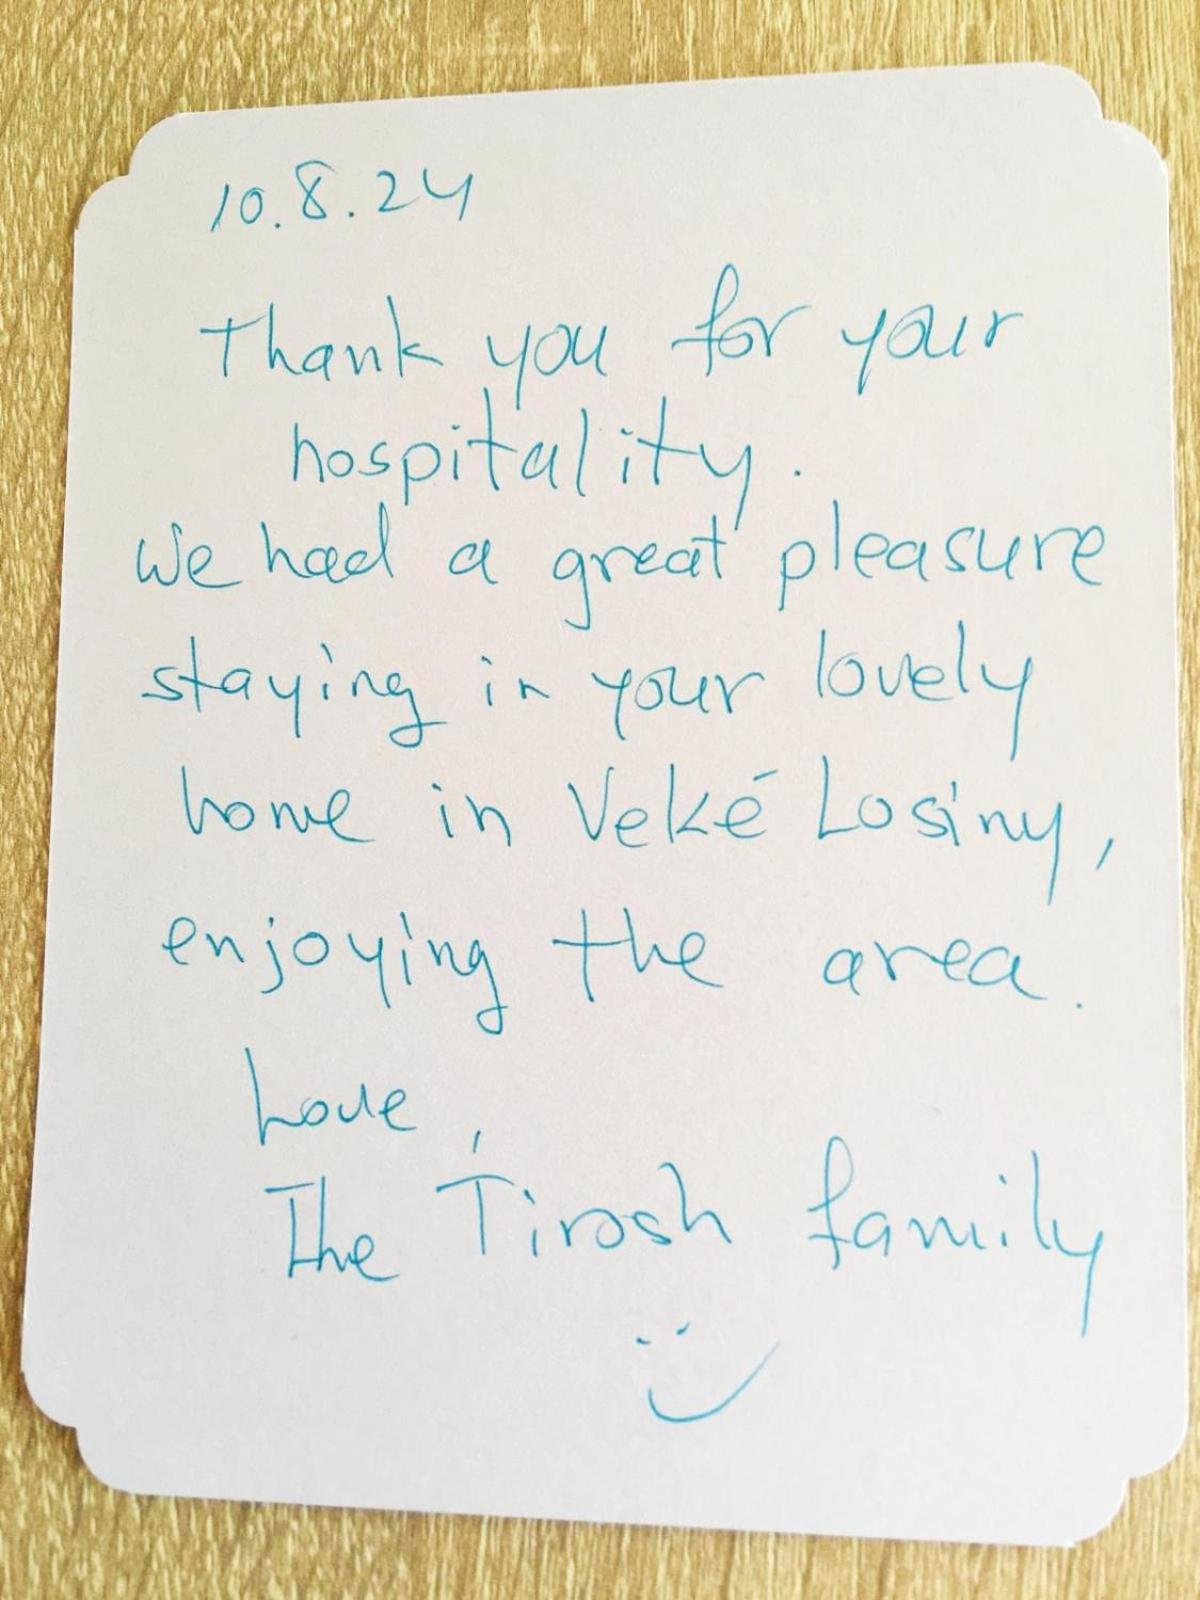 10.8.24
Thank you for your
hospitality.
We had a great pleasure
staying in your lovely
home in Veké Losiny,
enjoying the area.
Love,
The Tirosh family